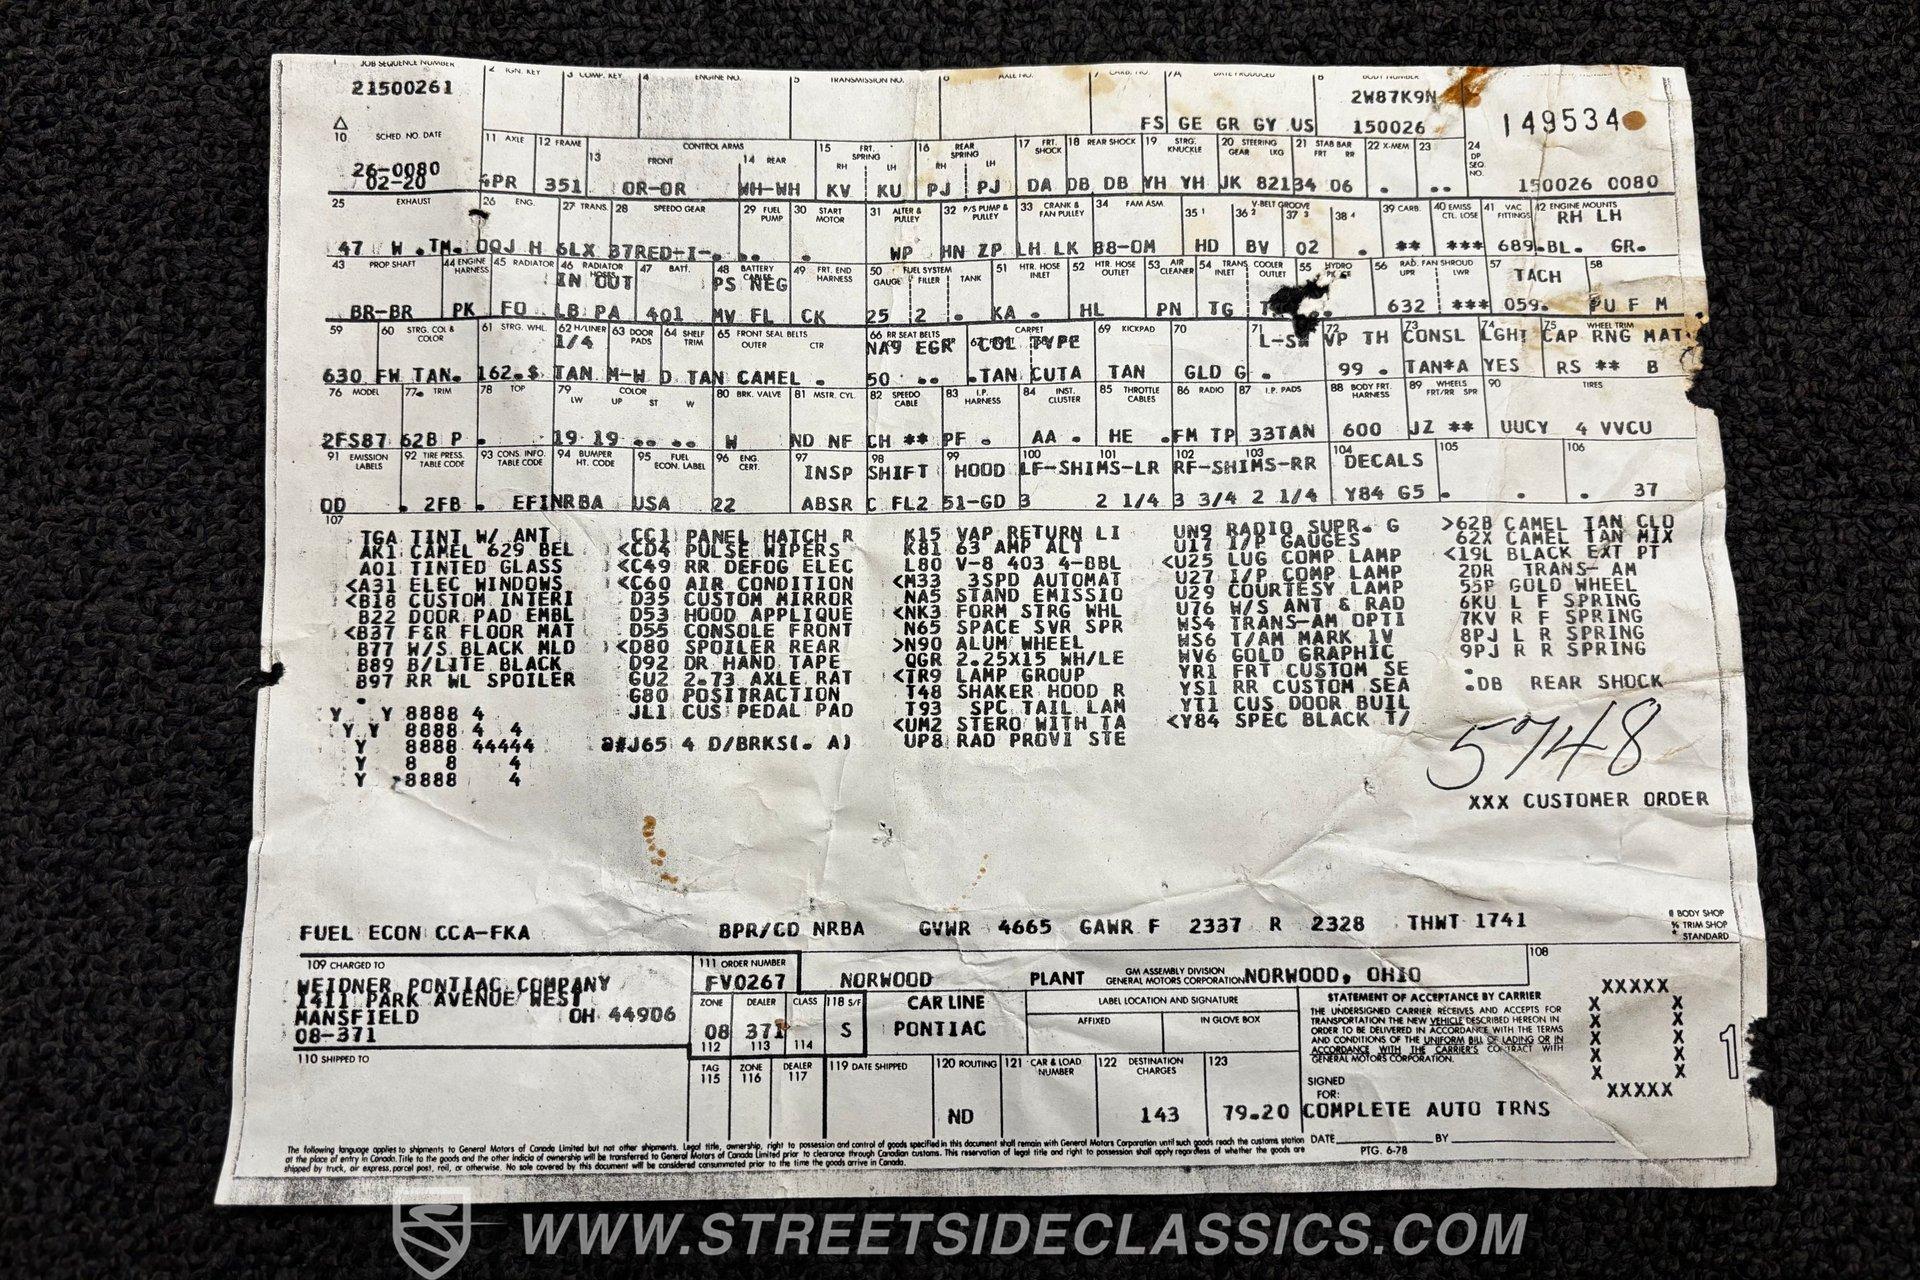 JOB SEQUENCE NUMBER 2 IGN. KEY 3 COMP. KEY 4 ENGINE NO. 5 TRANSMISSION NO. 6 AXLE NO. 7 CARB. NO. 7A DATE PRODUCED 8 BODY NUMBER
21500261 2W87K9N
FS GE GR GY US 150026 149534
10 SCHED. NO. DATE 11 AXLE 12 FRAME 13 CONTROL ARMS FRONT 14 REAR 15 FRT. SPRING RH LH 16 REAR SPRING RH LH 17 FRT. SHOCK 18 REAR SHOCK 19 STRG. KNUCKLE 20 STEERING GEAR LKG 21 STAB BAR FRT RR 22 X-MEM 23 24 DP SEQ. NO.
26-0080
02-20 4PR 351 OR-OR WH-WH KV KU PJ PJ DA DB DB YH YH JK 82134 06 . .. 150026 0080
25 EXHAUST 26 ENG. 27 TRANS. 28 SPEEDO GEAR 29 FUEL PUMP 30 START MOTOR 31 ALTER & PULLEY 32 P/S PUMP & PULLEY 33 CRANK & FAN PULLEY 34 FAN ASM. 35 1 V-BELT GROOVE 36 2 37 3 38 4 39 CARB. 40 EMISS CTL. LOSE 41 VAC FITTINGS 42 ENGINE MOUNTS
RH LH
47 W .TM. QQJ H 6LX 37RED-I-. . . . WP HN ZP LH LK 88-OM HD BV 02 . ** *** 689.BL. GR.
43 PROP SHAFT 44 ENGINE HARNESS 45 RADIATOR 46 RADIATOR HOSES 47 BATT. 48 BATTERY CABLES 49 FRT. END HARNESS 50 FUEL SYSTEM GAUGE FILLER TANK 51 HTR. HOSE INLET 52 HTR. HOSE OUTLET 53 AIR CLEANER 54 TRANS. COOLER INLET OUTLET 55 HYDRO 56 RAD. FAN SHROUD UPR LWR 57 58
IN OUT PS NEG TACH
BR-BR PK FO LB PA 401 MV FL CK 25 2 . KA . HL PN TG 632 *** 059. PU F M
59 60 STRG. COL & COLOR 61 STRG. WHL. 62 H/LINER 63 DOOR PADS 64 SHELF TRIM 65 FRONT SEAL BELTS OUTER CTR 66 RR SEAT BELTS 67 CARPET 69 KICKPAD 70 71 72 73 74 75 WHEEL TRIM
1/4 NA9 EGR COL TYPE VP TH CONSL LGHT CAP RNG MAT.
630 FW TAN. 162.$ TAN M-W D TAN CAMEL . 50 .. .TAN CUTA TAN GLD G . 99 . TAN*A YES RS ** B
76 MODEL 77 TRIM 78 TOP 79 COLOR LW UP ST W 80 BRK. VALVE 81 MSTR. CYL. 82 SPEEDO CABLE 83 I.P. HARNESS 84 INST. CLUSTER 85 THROTTLE CABLES 86 RADIO 87 I.P. PADS 88 BODY FRT. HARNESS 89 WHEELS FRT/RR SPR 90 TIRES
2FS87 62B P . 19 19 .. .. W ND NF CH ** PF . AA . HE .FM TP 33TAN 600 JZ ** UUCY 4 VVCU
91 EMISSION LABELS 92 TIRE PRESS. TABLE CODE 93 CONS. INFO. TABLE CODE 94 BUMPER HT. CODE 95 FUEL ECON. LABEL 96 ENG. CERT. 97 98 99 100 101 102 103 104 105 106
INSP SHIFT HOOD LF-SHIMS-LR RF-SHIMS-RR DECALS
OD . 2FB . EFINRBA USA 22 ABSR C FL2 51-GD 3 2 1/4 3 3/4 2 1/4 Y84 G5 . . . 37
107
TGA TINT W/ ANT
AK1 CAMEL 629 BEL
A01 TINTED GLASS
<A31 ELEC WINDOWS
<B18 CUSTOM INTERI
B22 DOOR PAD EMBL
<B37 F&R FLOOR MAT
B77 W/S BLACK MLD
B89 B/LITE BLACK
B97 RR WL SPOILER
CC1 PANEL HATCH R
<CD4 PULSE WIPERS
<C49 RR DEFOG ELEC
<C60 AIR CONDITION
D35 CUSTOM MIRROR
D53 HOOD APPLIQUE
D55 CONSOLE FRONT
<D80 SPOILER REAR
D92 DR HAND TAPE
GU2 2.73 AXLE RAT
G80 POSITRACTION
JL1 CUS PEDAL PAD
a#J65 4 D/BRKS(. A)
K15 VAP RETURN LI
K81 63 AMP ALT
L80 V-8 403 4-BBL
<M33 3SPD AUTOMAT
NA5 STAND EMISSIO
<NK3 FORM STRG WHL
N65 SPACE SVR SPR
>N90 ALUM WHEEL
QGR 2.25X15 WH/LE
<TR9 LAMP GROUP
T48 SHAKER HOOD R
T93 SPC TAIL LAM
<UM2 STERO WITH TA
UP8 RAD PROVI STE
UN9 RADIO SUPR. G
U17 I/P GAUGES
<U25 LUG COMP LAMP
U27 I/P COMP LAMP
U29 COURTESY LAMP
U76 W/S ANT & RAD
WS4 TRANS-AM OPTI
WS6 T/AM MARK 1V
WV6 GOLD GRAPHIC
YR1 FRT CUSTOM SE
YS1 RR CUSTOM SEA
YT1 CUS DOOR BUIL
<Y84 SPEC BLACK T/
>62B CAMEL TAN CLO
62X CAMEL TAN MIX
<19L BLACK EXT PT
2DR TRANS- AM
55P GOLD WHEEL
6KU L F SPRING
7KV R F SPRING
8PJ L R SPRING
9PJ R R SPRING
.DB REAR SHOCK
Y Y 8888 4
Y Y 8888 4 4
Y 8888 44444
Y 8 8 4
Y 8888 4
5748
XXX CUSTOMER ORDER
FUEL ECON CCA-FKA BPR/CD NRBA GVWR 4665 GAWR F 2337 R 2328 THWT 1741
# BODY SHOP
% TRIM SHOP
* STANDARD
109 CHARGED TO
WEIDNER PONTIAC COMPANY
1411 PARK AVENUE WEST
MANSFIELD OH 44906
08-371
110 SHIPPED TO
111 ORDER NUMBER
FV0267
ZONE DEALER CLASS 118 S/F
08 371 S
112 113 114
NORWOOD PLANT GM ASSEMBLY DIVISION GENERAL MOTORS CORPORATION NORWOOD, OHIO 108
CAR LINE
PONTIAC
LABEL LOCATION AND SIGNATURE
AFFIXED IN GLOVE BOX
TAG 115 ZONE 116 DEALER 117 119 DATE SHIPPED 120 ROUTING 121 CAR & LOAD NUMBER 122 DESTINATION CHARGES 123
ND 143 79.20
STATEMENT OF ACCEPTANCE BY CARRIER
THE UNDERSIGNED CARRIER RECEIVES AND ACCEPTS FOR
TRANSPORTATION THE NEW VEHICLE DESCRIBED HEREON IN
ORDER TO BE DELIVERED IN ACCORDANCE WITH THE TERMS
AND CONDITIONS OF THE UNIFORM BILL OF LADING OR IN
ACCORDANCE WITH THE CARRIER'S CONTRACT WITH
GENERAL MOTORS CORPORATION.
SIGNED
FOR:
COMPLETE AUTO TRNS
DATE BY
PTG. 6-78
XXXXX
X X
X X
X X
X X
X X
XXXXX
1
The following language applies to shipments to General Motors of Canada Limited but not other shipments. Legal title, ownership, right to possession and control of goods specified in this document shall remain with General Motors Corporation until such goods reach the customs station
at the place of entry in Canada. Title to the goods and the other indicia of ownership will be transferred to General Motors of Canada Limited prior to clearance through Canadian customs. This reservation of legal title and right to possession shall apply regardless of whether the goods are
shipped by truck, air express, parcel post, rail, or otherwise. No sale covered by this document will be considered consummated prior to the time the goods arrive in Canada.
WWW.STREETSIDECLASSICS.COM